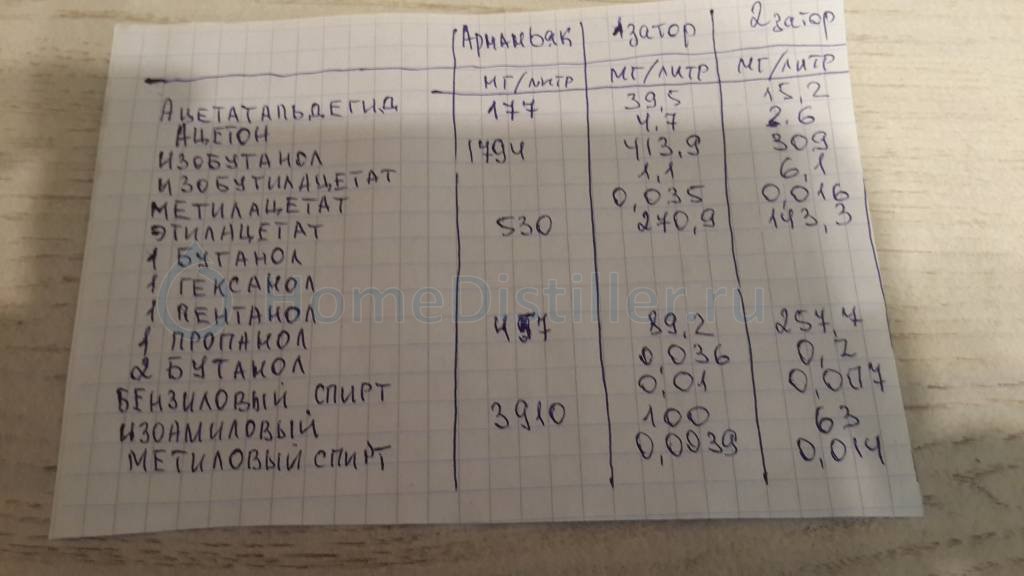 Арманьяк 1 затор 2 затор
мг/литр мг/литр мг/литр
Ацетатальдегид 177 39,5 15,2
Ацетон 4,7 2,6
Изобутанол 1794 413,9 309
Изобутилацетат 1.1 6,1
Метилацетат 0,035 0,016
Этилацетат 530 270,9 143,3
1 Бутанол
1 Гексанол
1 Пентанол
1 Пропанол 457 89,2 257,7
2 Бутанол 0,036 0,2
Бензиловый спирт 0,01 0,007
Изоамиловый 3910 100 63
Метиловый спирт 0,0039 0,014
HomeDistiller.ru